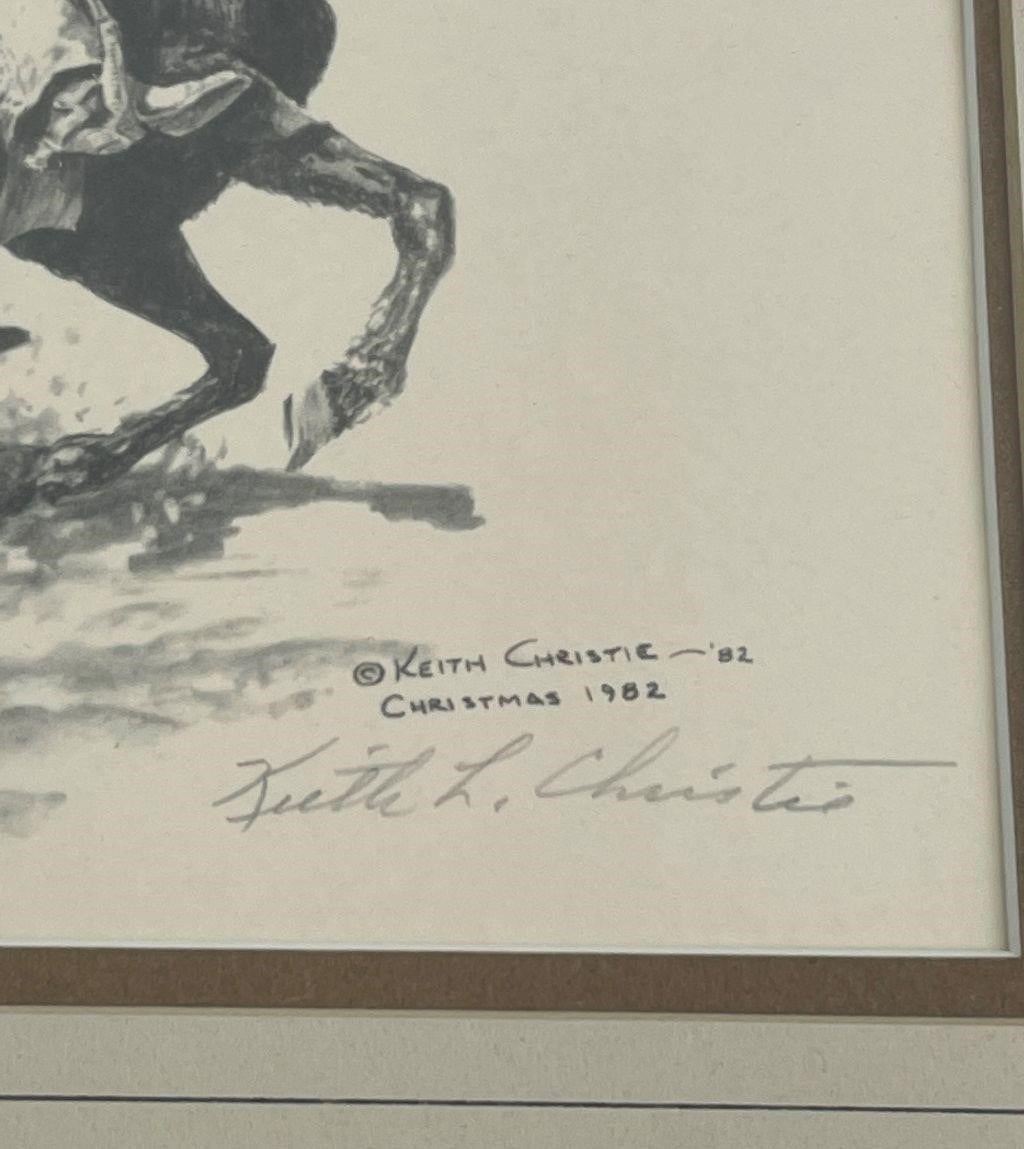 © KEITH CHRISTIE — '82
CHRISTMAS 1982
Keith L. Christie